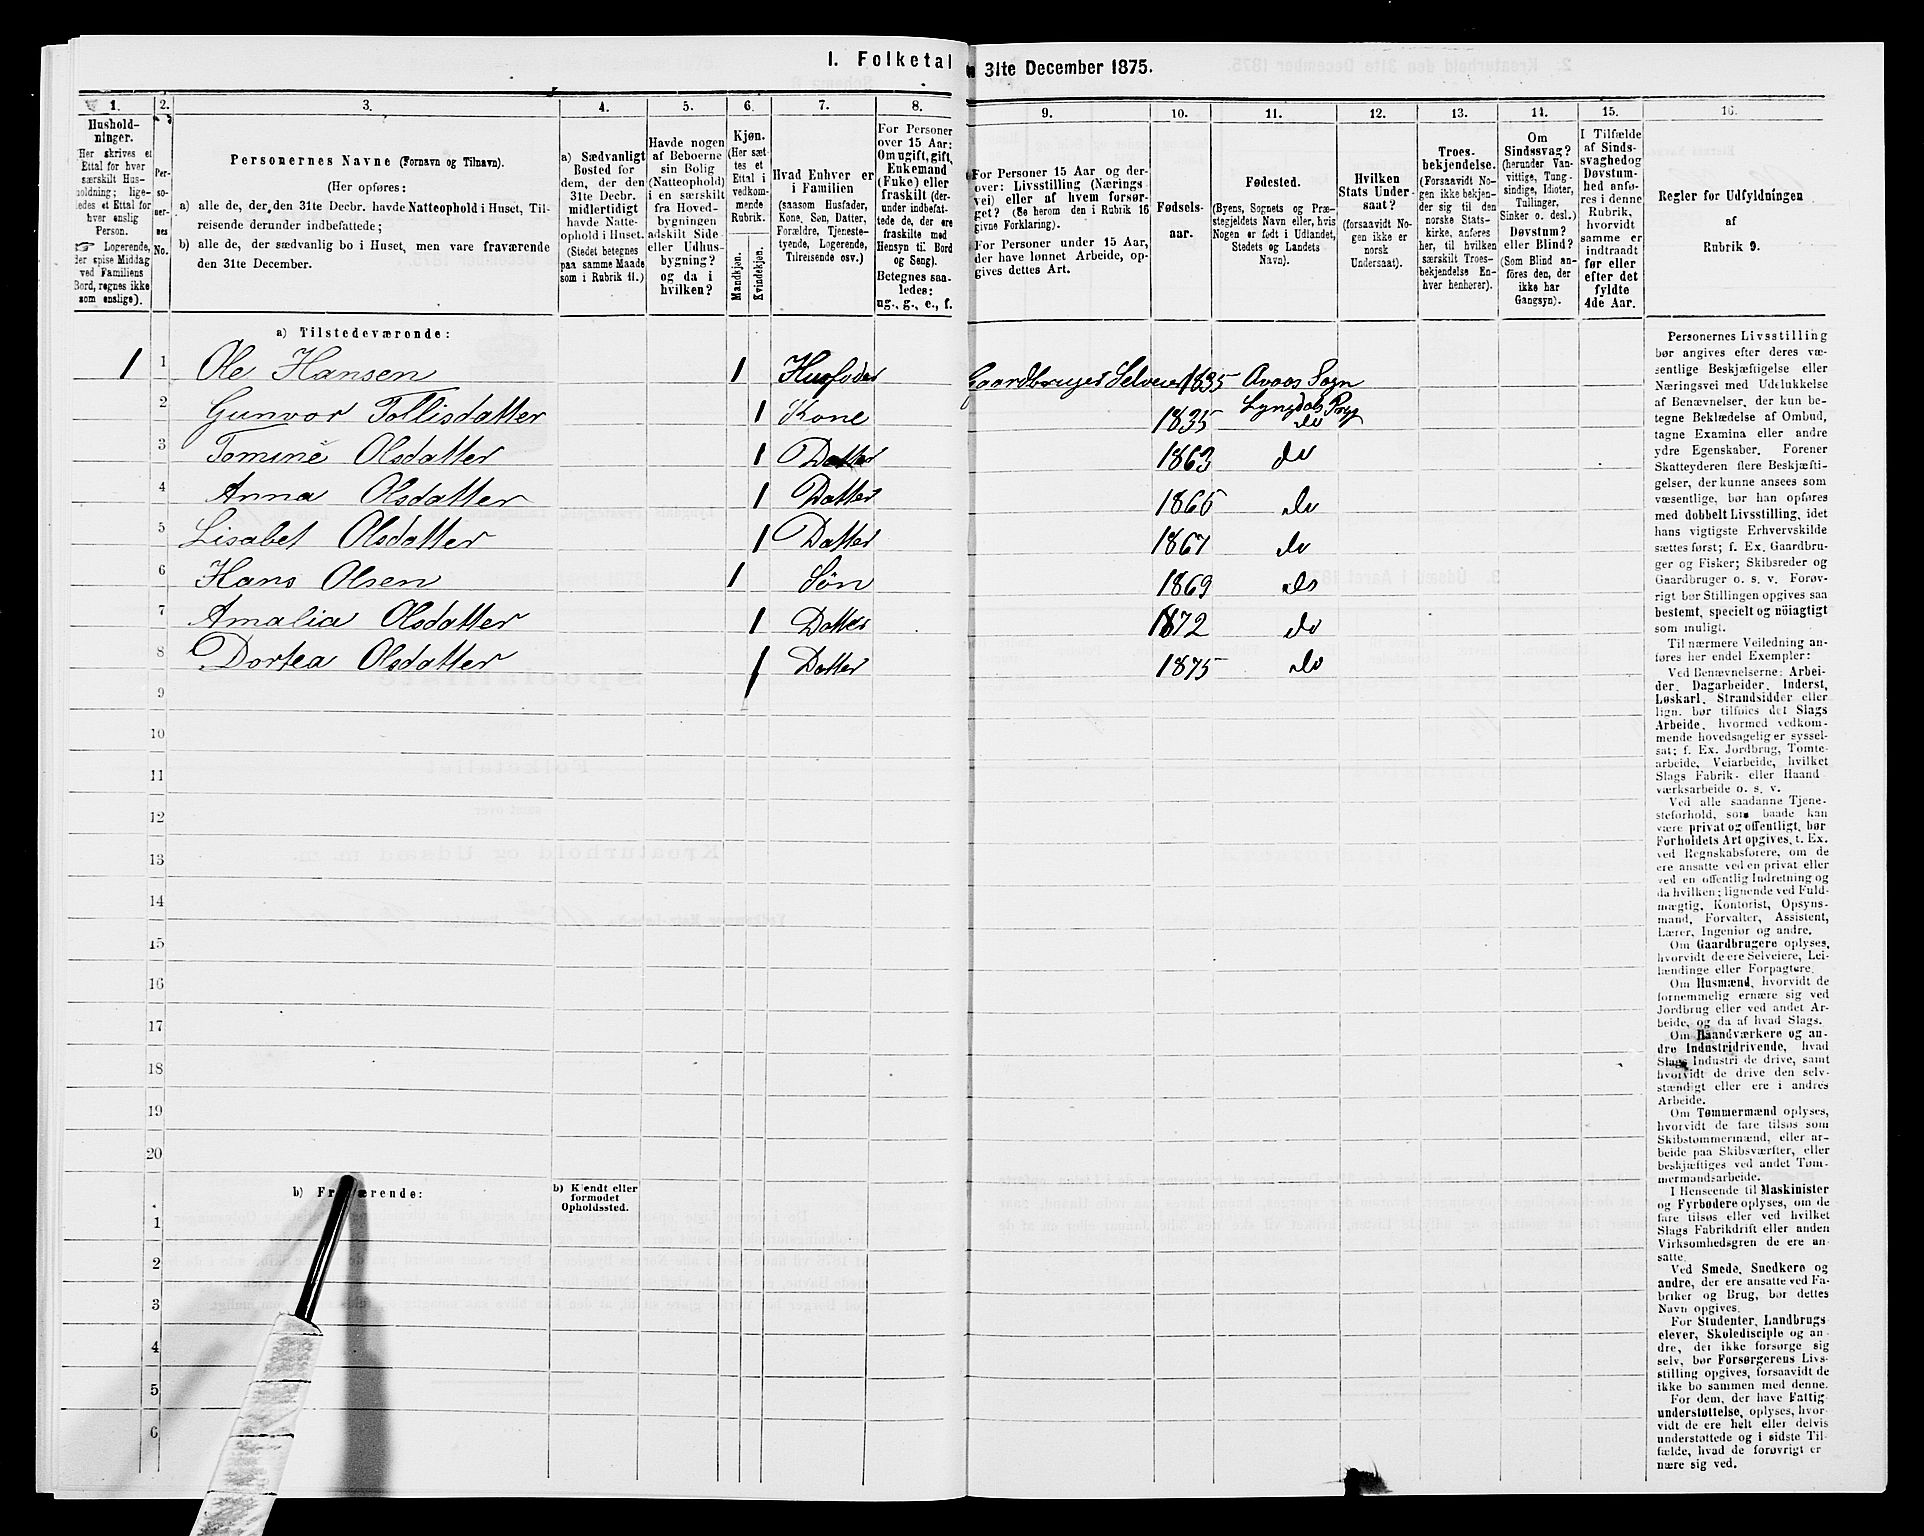 I. Folketal
31te December 1875.
1. 2. 3. 4. 5. 6. 7. 8.
Hushold-
ninger.
Her skrives et
Ettal for hver
særskilt Hus-
holdning; lige-
ledes et Ettal for
hver enslig
Person.
☞ Logerende,
der spise Middag
ved Familiens
Bord, regnes ikke
som enslige).
Per-
so-
ner-
nes
No.
Personernes Navne (Fornavn og Tilnavn).
(Her opføres:
a) alle de, der den 31te Decbr. havde Natteophold i Huset, Til-
reisende derunder indbefattede;
b) alle de, der sædvanlig bo i Huset, men vare fraværende
den 31te December.
a) Sædvanligt
Bosted for
dem, der den
31te Decbr.
midlertidigt
havde Natte-
ophold i Huset.
(Stedet betegnes
paa samme Maade
som i Rubrik 11.)
Havde nogen
af Beboerne
sin Bolig
(Natteophold)
i en særskilt
fra Hoved-
bygningen
adskilt Side-
eller Udhus-
bygning?
og da i
hvilken?
Kjøn.
(Her sæt-
tes et
Ettal i
vedkom-
mende
Rubrik.
Mandkjøn.
Kvindekjøn.
Hvad Enhver er
i Familien
(saasom Husfader,
Kone, Søn, Datter,
Forældre, Tjeneste-
tyende, Logerende,
Tilreisende osv.)
For Personer
over 15 Aar:
Om ugift, gift,
Enkemand
(Enke) eller
fraskilt (der-
under indbefat-
tede de, der ere
fraskilte med
Hensyn til Bord
og Seng).
Betegnes saa-
ledes:
ug., g., e., f.
9. 10. 11. 12. 13. 14. 15. 16.
For Personer 15 Aar og der-
over: Livsstilling (Nærings
vei) eller af hvem forsør-
get? (Se herom den i Rubrik 16
givne Forklaring).
For Personer under 15 Aar,
der have lønnet Arbeide, op-
gives dettes Art.
Fødsels-
aar.
Fødested.
(Byens, Sognets og Præ-
stegjeldets Navn eller, hvis
Nogen er født i Udlandet,
Stedets og Landets
Navn).
Hvilken
Stats Under-
saat?
(forsaavidt No-
gen ikke er
norsk
Undersaat).
Troes-
bekjendelse.
(Forsaavidt No-
gen ikke bekjen-
der sig til den
norske Stats-
kirke, anføres
her, til hvilken
særskilt Troes-
bekjendelse En-
hver henhører).
Om
Sindssvag?
(herunder Van-
vittige, Tung-
sindige, Idioter,
Tullinger,
Sinker o. desl.)
Døvstum?
eller Blind?
(Som Blind an-
føres den, der
ikke har
Gangsyn).
I Tilfælde
af Sinds-
svaghed og
Døvstum-
hed anfø-
res i denne
Rubrik,
hvorvidt
samme er
indtraadt
før eller
efter det
fyldte
4de Aar.
Regler for Udfyldningen
af
Rubrik 9.
a) Tilstedeværende:
1 1 Ole Hansen 1 Husfader Gaardbruger Selveier 1835 Avaas Sogn
Lyngdals Prgj
2 Gunvor Tollisdatter 1 Kone 1835 do
3 Tomine Olsdatter 1 Datter 1863 do
4 Anna Olsdatter 1 Datter 1865 do
5 Lisabet Olsdatter 1 Datter 1867 do
6 Hans Olsen 1 Søn 1869 do
7 Amalia Olsdatter 1 Datter 1872 do
8 Dortea Olsdatter 1 Datter 1875 do
9
10
11
12
13
14
15
16
17
18
19
20
b) Fraværende:
b) Kjendt eller
formodet
Opholdssted.
1
2
3
4
5
6
Personernes Livsstilling
bør angives efter deres væ-
sentlige Beskjæftigelse eller
Næringsvei med Udelukkelse
af Benævnelser, der kun be-
tegne Beklædelse af Ombud,
tagne Examina eller andre
ydre Egenskaber. Forener
Skatteyderen flere Beskjæfti-
gelser, der kunne ansees som
væsentlige, bør han opføres
med dobbelt Livsstilling, idet
hans vigtigste Erhvervskilde
sættes først; f. Ex. Gaardbru-
ger og Fisker; Skibsreder og
Gaardbruger o. s. v. Forøv-
rigt bør Stillingen opgives saa
bestemt, specielt og nöiagtigt
som muligt.
Til nærmere Veiledning an-
føres her endel Exempler:
Ved Benævnelserne: Arbei-
der, Dagarbeider, Inderst,
Løskarl, Strandsidder eller
lign. bør tilføies det Slags
Arbeide, hvormed vedkom-
mende hovedsagelig er syssel-
sat; f. Ex. Jordbrug, Tomte-
arbeide, Veiarbeide, hvilket
Slags Fabrik- eller Haand
værksarbeide o. s. v.
Ved alle saadanne Tjene-
steforhold, som baade kan
være privat og offentligt, bør
Forholdets Art opgives, t. Ex.
ved Regnskabsførere, om de
ere ansatte ved en privat eller
ved en offentlig Indretning og
da hvilken; lignende ved Fuld-
mægtig, Kontorist, Opsyns-
mand, Forvalter, Assistent,
Lærer, Ingeniør og andre.
Om Gaardbrugere oplyses,
hvorvidt de ere Selveiere, Lei-
lændinge eller Forpagtere.
Om Husmænd, hvorvidt de
fornemmelig ernære sig ved
Jordbrug eller ved andet Ar-
beide, og da af hvad Slags.
Om Haandværkere og an-
dre Industridrivende, hvad
Slags Industri de drive, samt
hvorvidt de drive den selv-
stændigt eller ere i andres
Arbeide.
Om Tømmermænd oplyses,
hvorvidt de fare tilsøs som
Skibstømmermænd, eller ar-
beide paa Skibsværfter, eller
beskjæftiges ved andet Tøm-
mermandsarbeide.
I Henseende til Maskinister
og Fyrbødere oplyses, om de
fare tilsøs eller ved hvilket
Slags Fabrikdrift eller anden
Virksomhedsgren de ere an-
satte.
Ved Smede, Snedkere og
andre, der ere ansatte ved Fa-
briker og Brug, bør dettes
Navn opgives.
For Studenter, Landbrugs
elever, Skoledisciple og an-
dre, der ikke forsørge sig
selv, bør Forsørgerens Livs-
stilling opgives, forsaavidt de
ikke bo sammen med denne.
For dem, der have Fattig-
understøttelse, oplyses, hvor-
vidt de ere helt eller delvis
understøttede og i sidste Til-
fælde, hvad de forøvrigt er
nære sig ved.